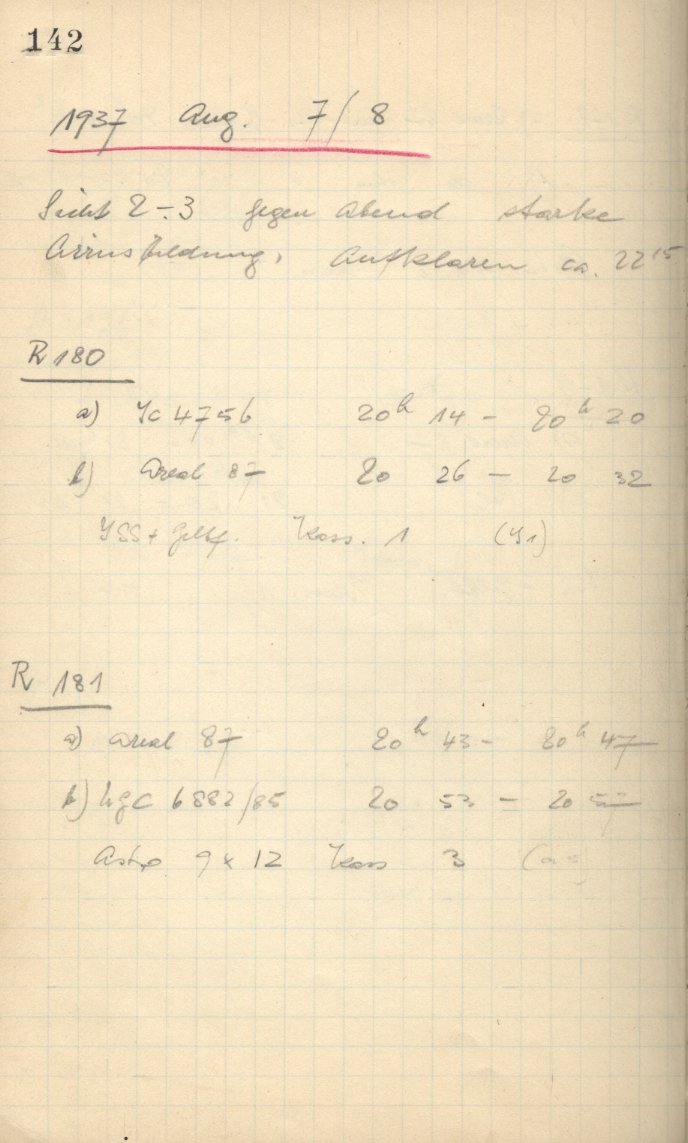 142
1937 Aug. 7/8
Sicht 2-3 gegen Abend starke
Cirrusbildung, Aufklaren ca. 22 15
R 180
a) Ic 4756 20h 14 - 20h 20
b) Areal 87 20 26 - 20 32
ISS + Gelbf. Kass. 1 (I1)
R 181
a) Areal 87 20h 43 - 20h 47
b) NGC 6882/85 20 53 - 20 57
Astro 9 x 12 Kass 3